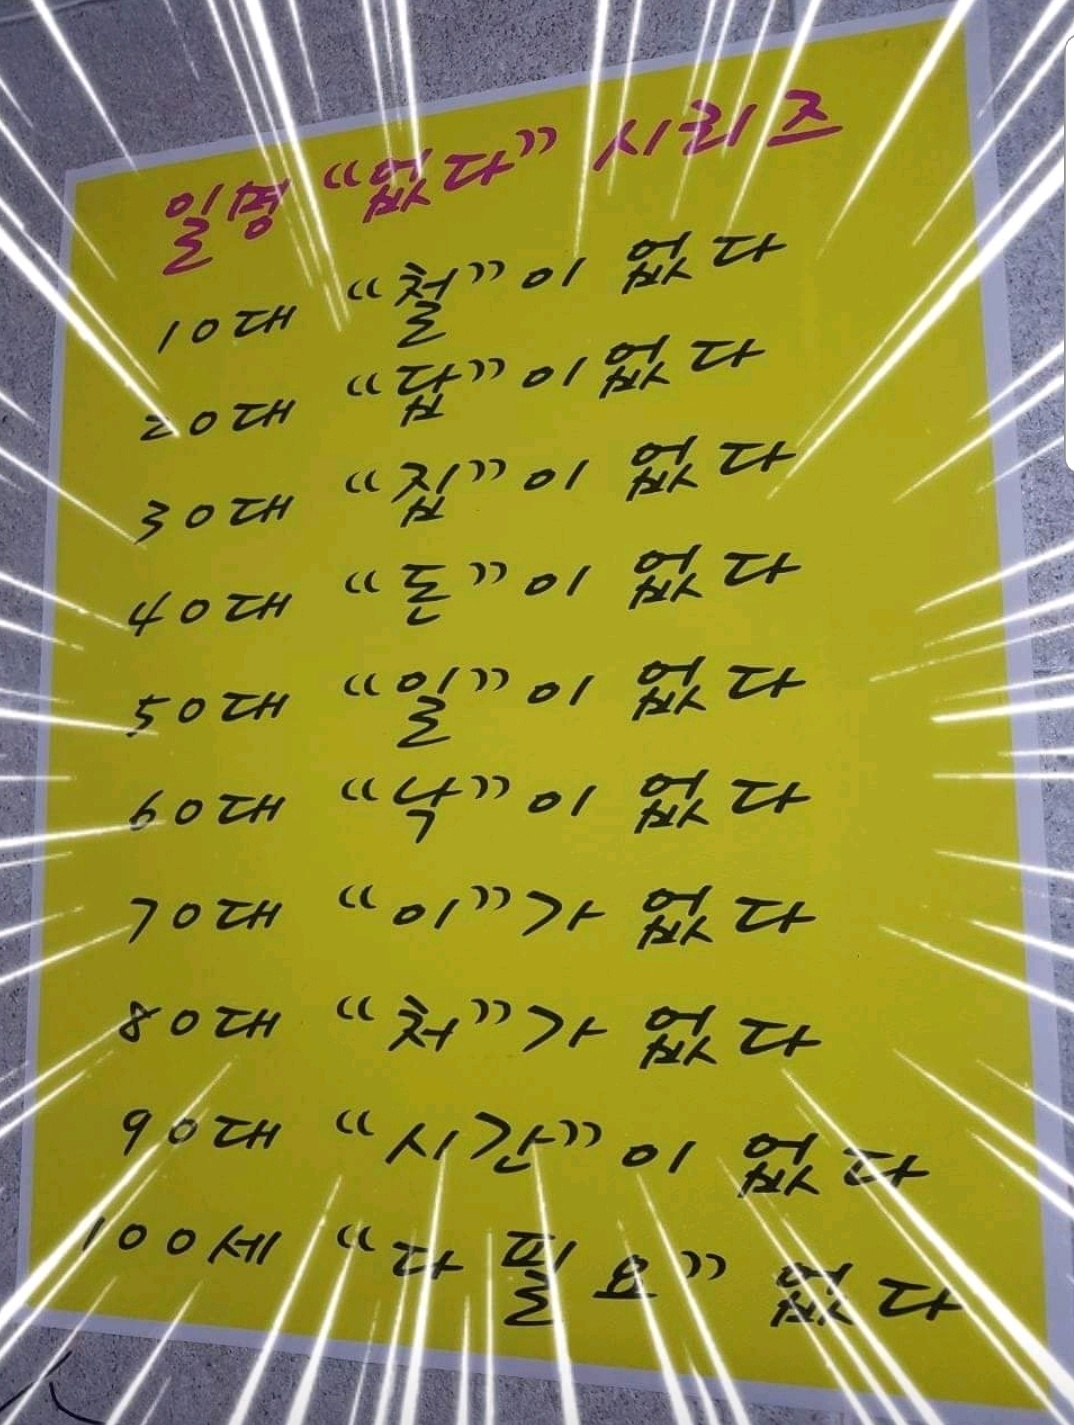 일명 "없다" 시리즈
10대 "철"이 없다
20대 "답"이 없다
30대 "집"이 없다
40대 "돈"이 없다
50대 "일"이 없다
60대 "낙"이 없다
70대 "이"가 없다
80대 "처"가 없다
90대 "시간"이 없다
100세 "다 필요" 없다